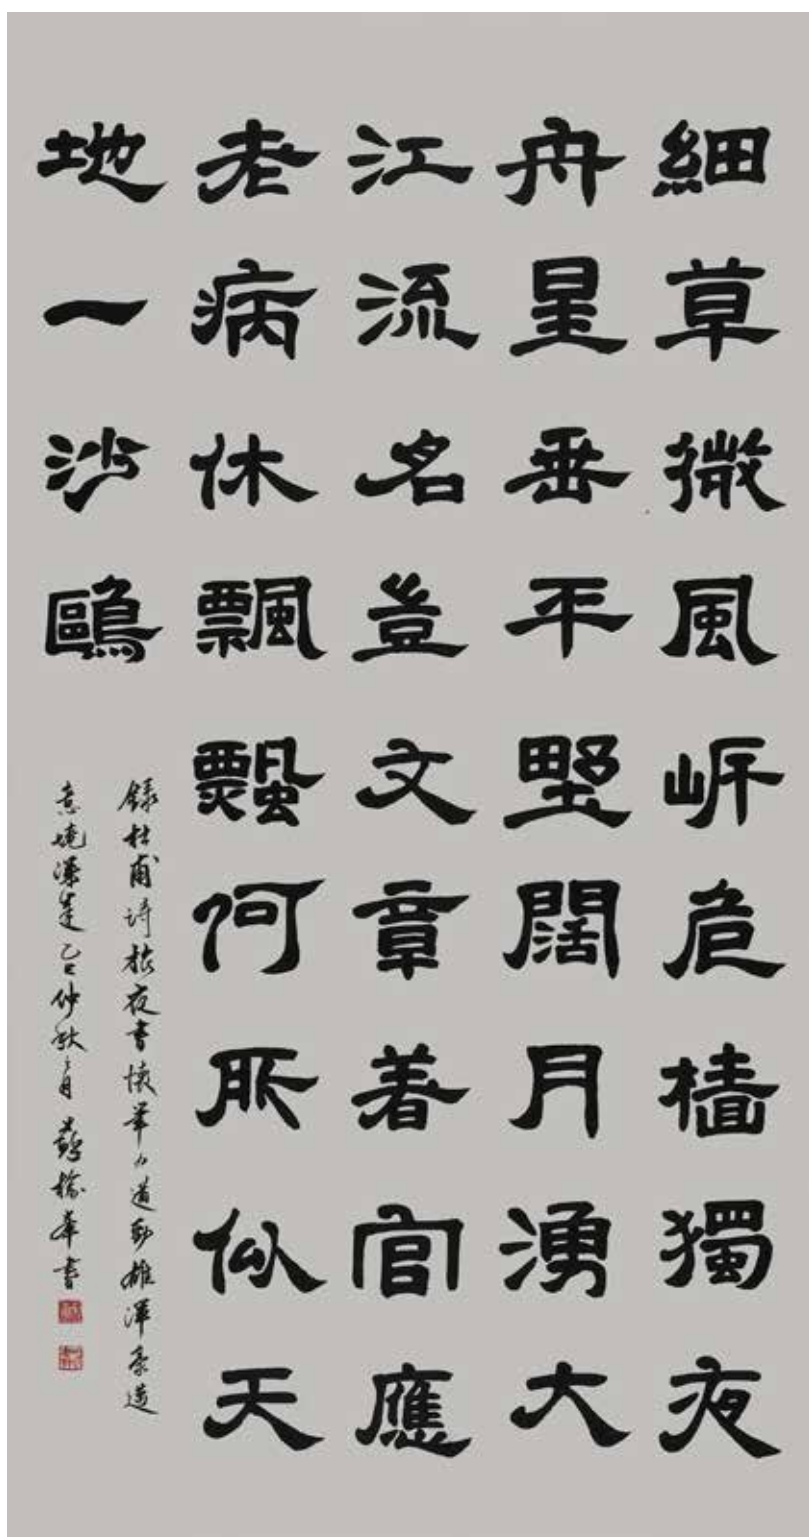 細草微風岸危檣獨夜
舟星垂平野闊月湧大
江流名豈文章著官應
老病休飄飄何所似天
地一沙鷗
錄杜甫詩旅夜書懷筆力遒勁雄渾豪邁
意境深遠乙巳仲秋之月華書